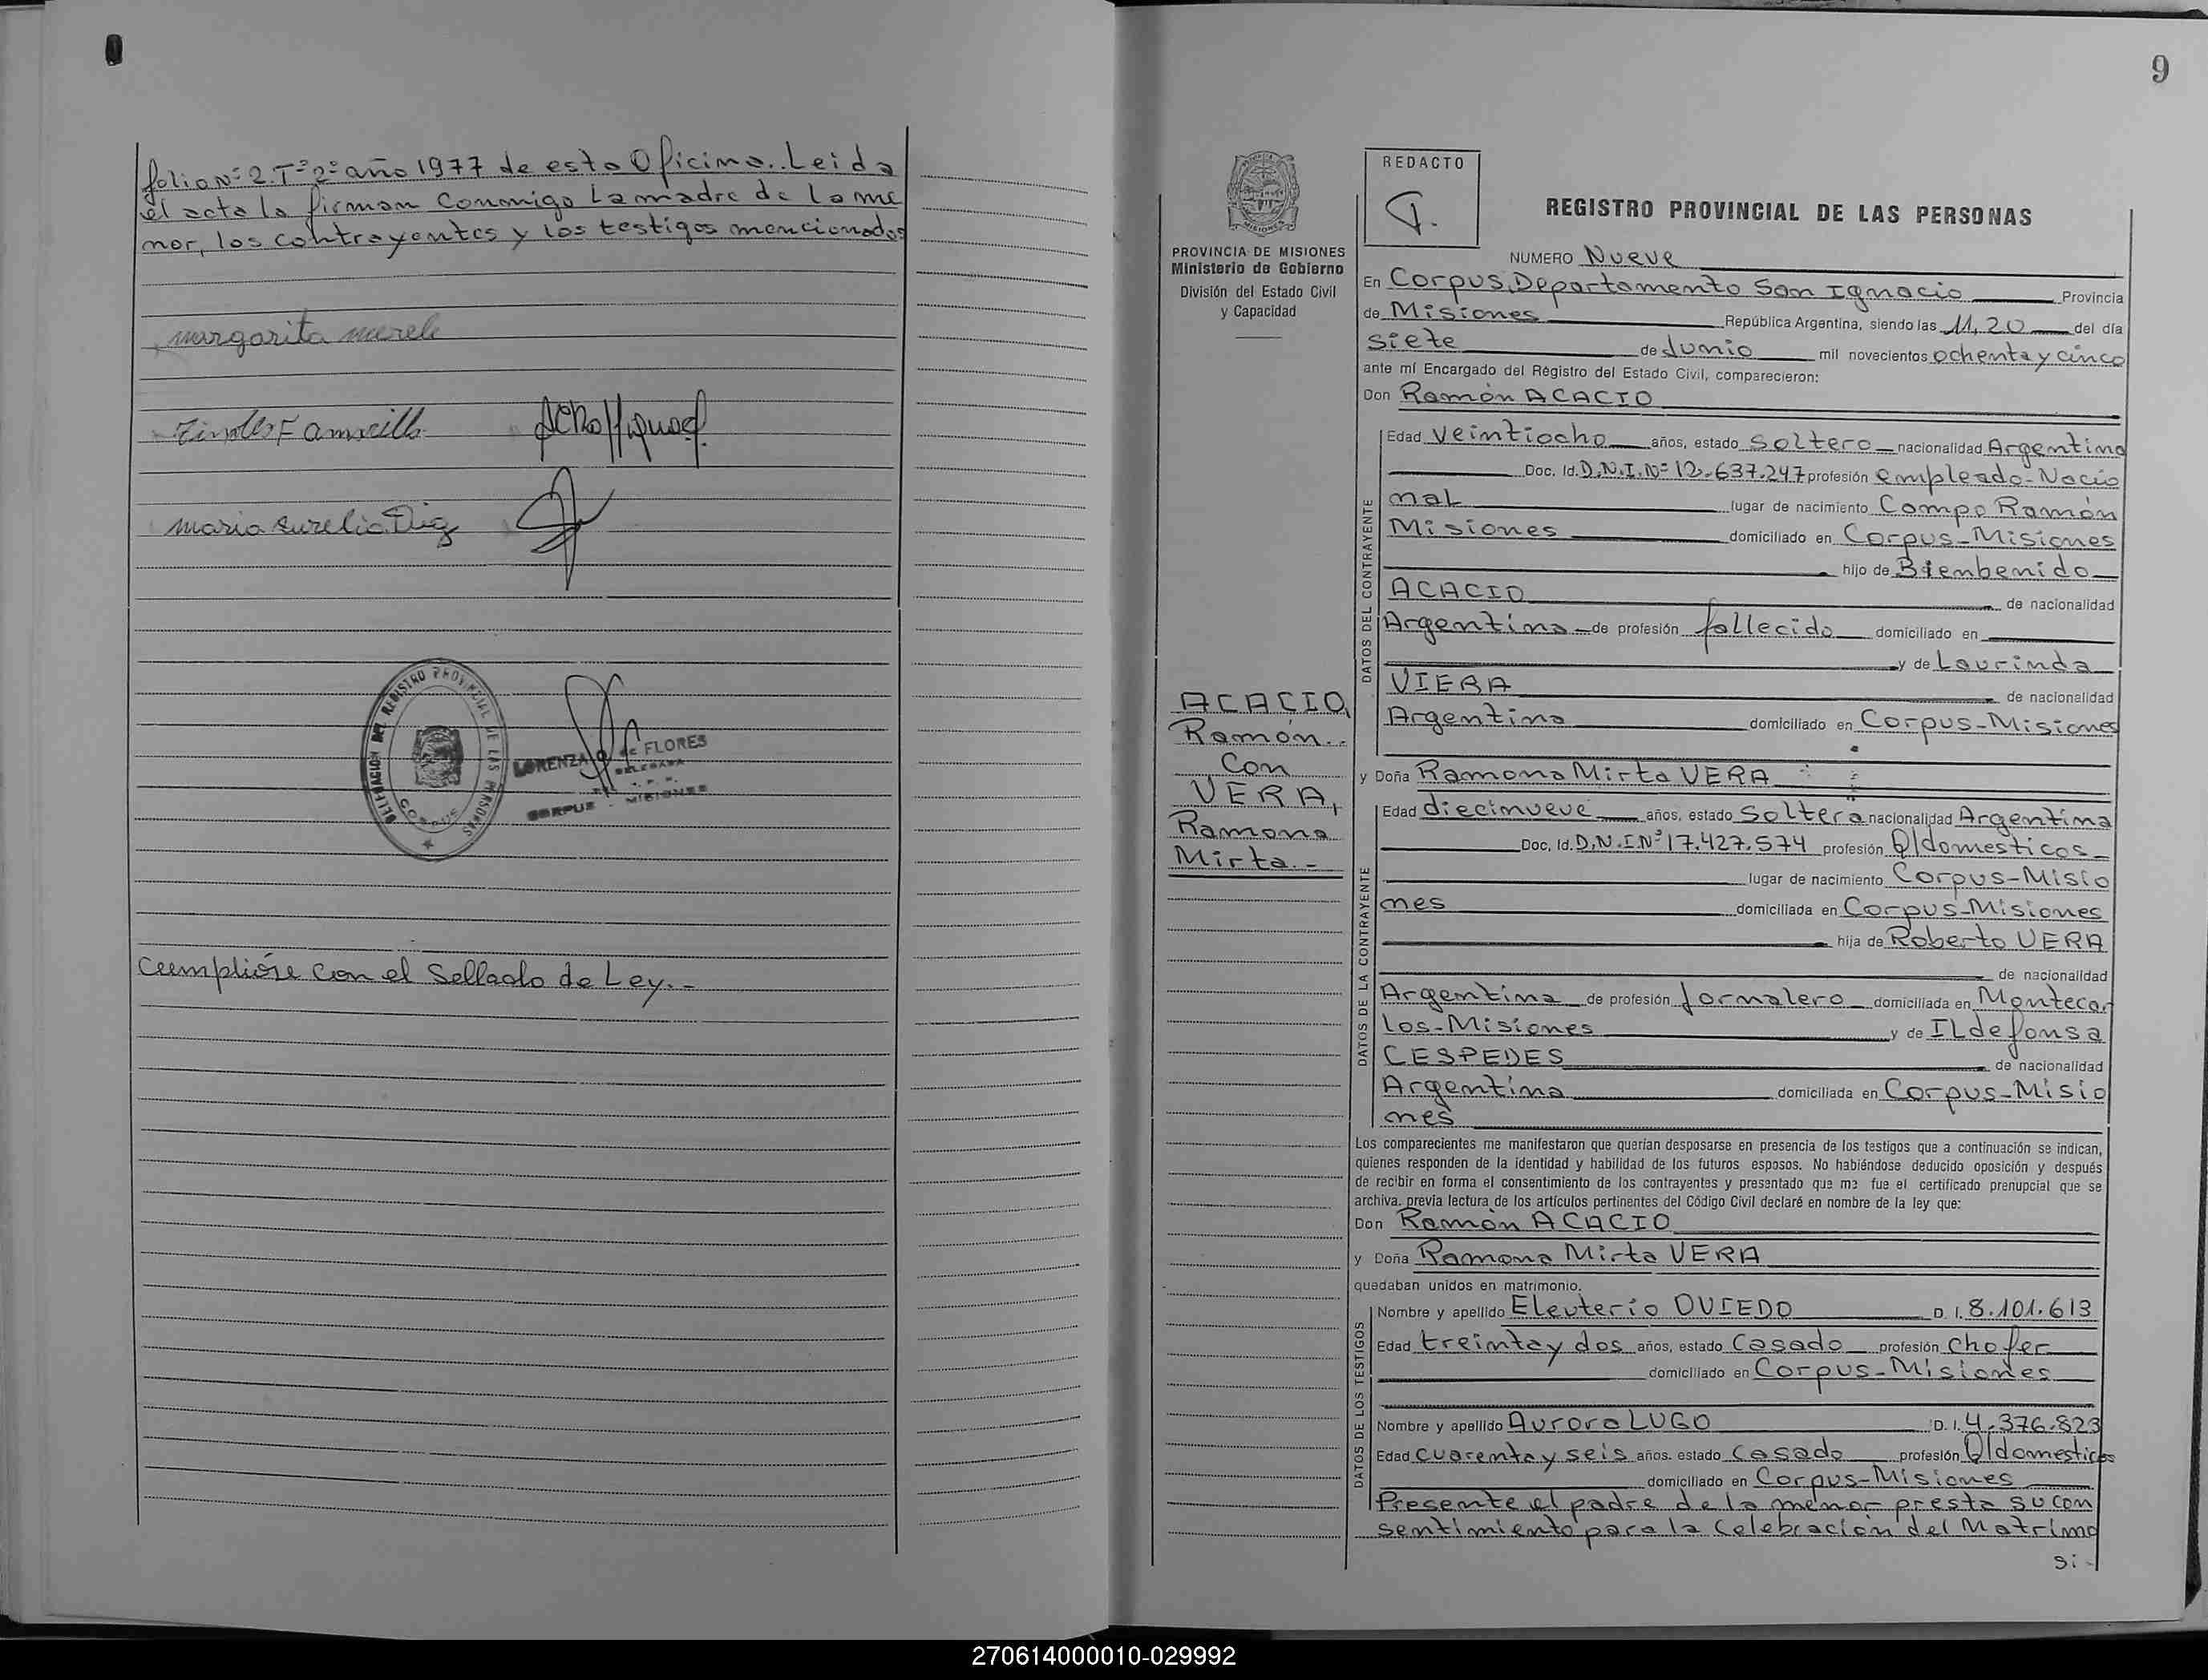 folio Nº 2. Tº 2º año 1977 de esta Oficina.. Leida
el acta la firman Conmigo La madre de la me
nor, los contrayentes y los testigos mencionados
margarita merele
maria Aurelia Diaz
DELEGACION DEL REGISTRO PROVINCIAL DE LAS PERSONAS
CORPUS
LORENZA de FLORES
DELEGADA
CORPUS - MISIONES
Cumplióse con el Sellado de Ley.-
9
PROVINCIA DE MISIONES
Ministerio de Gobierno
División del Estado Civil
y Capacidad
REDACTO
REGISTRO PROVINCIAL DE LAS PERSONAS
NUMERO Nueve
En Corpus, Departamento San Ignacio Provincia
de Misiones República Argentina, siendo las 11,20 del día
siete de Junio mil novecientos ochenta y cinco
ante mí Encargado del Régistro del Estado Civil, comparecieron:
Don Ramón ACACIO
DATOS DEL CONTRAYENTE
Edad veintiocho años, estado soltero nacionalidad Argentina
Doc. Id. D.N.I. Nº 12.637.247 profesión empleado-Nacio
nal lugar de nacimiento Campo Ramón
Misiones domiciliado en Corpus-Misiones
hijo de Bienbenido
ACACIO de nacionalidad
Argentina de profesión fallecido domiciliado en
y de Laurinda
VIERA de nacionalidad
Argentina domiciliado en Corpus-Misiones
ACACIO,
Ramón..
Con
VERA,
Ramona
Mirta.-
y Doña Ramona Mirta VERA
DATOS DE LA CONTRAYENTE
Edad diecinueve años, estado soltera nacionalidad Argentina
Doc. Id. D.N.I.Nº 17.427.574 profesión Q/domesticos
lugar de nacimiento Corpus-Misio
nes domiciliada en Corpus-Misiones
hija de Roberto VERA
de nacionalidad
Argentina de profesión Jornalero domiciliada en Montecar
los-Misiones y de ILdefonsa
CESPEDES de nacionalidad
Argentina domiciliada en Corpus-Misio
nes
Los comparecientes me manifestaron que querían desposarse en presencia de los testigos que a continuación se indican,
quienes responden de la identidad y habilidad de los futuros esposos. No habiéndose deducido oposición y después
de recibir en forma el consentimiento de los contrayentes y presentado que me fue el certificado prenupcial que se
archiva, previa lectura de los artículos pertinentes del Código Civil declaré en nombre de la ley que:
Don Ramón ACACIO
y Doña Ramona Mirta VERA
quedaban unidos en matrimonio.
DATOS DE LOS TESTIGOS
Nombre y apellido Eleuterio OVIEDO D. I. 8.101.613
Edad treinta y dos años, estado Casado profesión chofer
domiciliado en Corpus-Misiones
Nombre y apellido Aurora LUGO D. I. 4.376.823
Edad cuarenta y seis años. estado Casada profesión Q/domesticos
domiciliado en Corpus-Misiones
Presente el padre de la menor presta su con
sentimiento para la celebración del Matrimo
si-
270614000010-029992